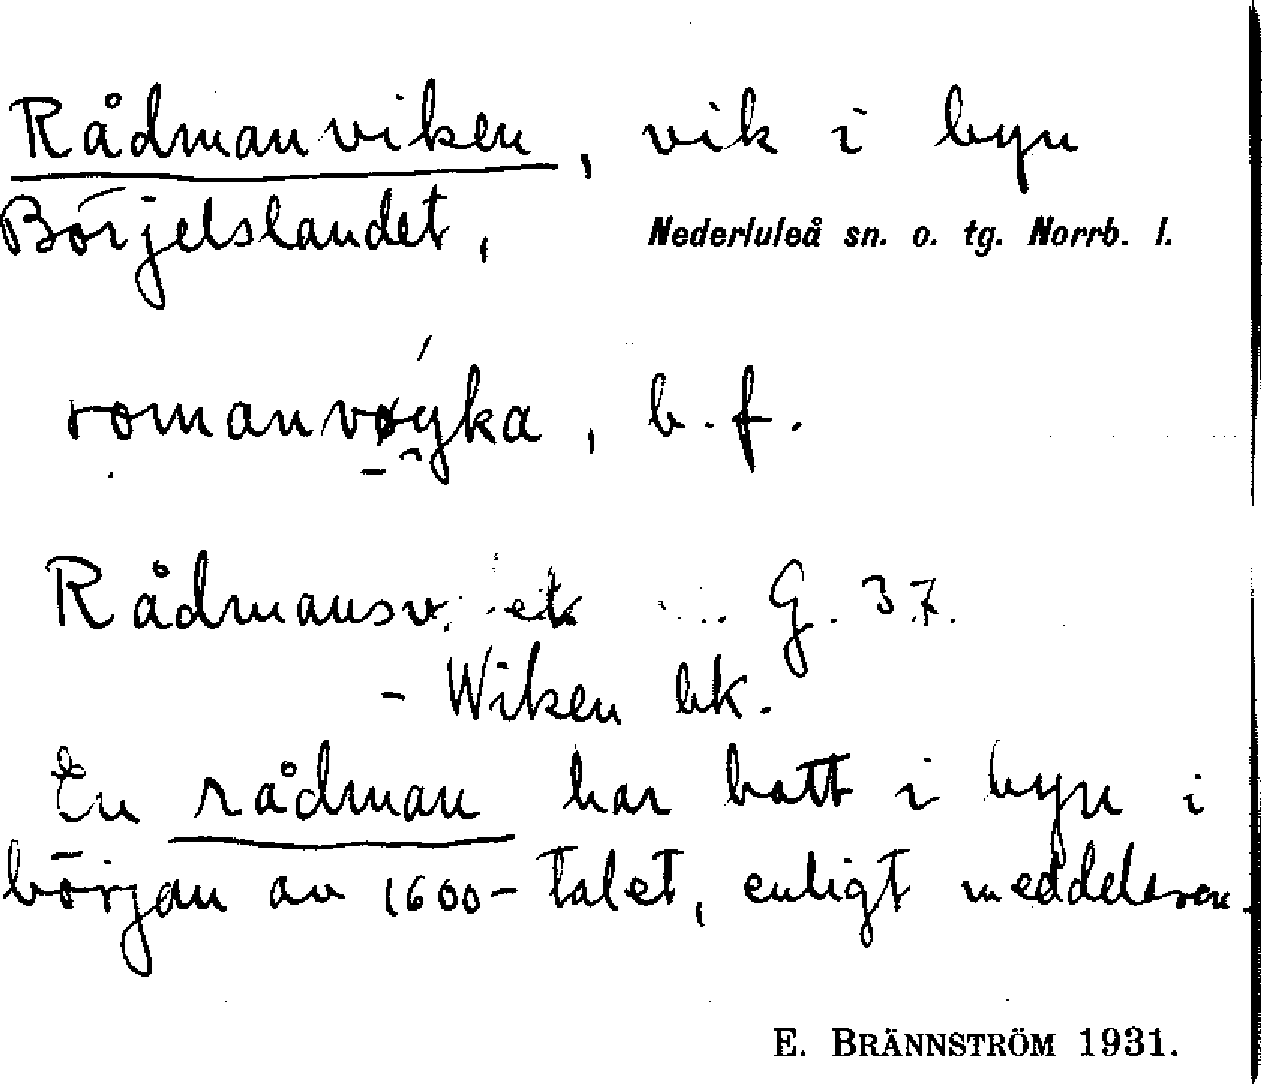 Rådmanviken, vik i byn
Börjelslandet, Nederluleå sn. o. tg. Norrb. l.
romanvøyka, b. f.
Rådmansv. ek G. 37.
- Wiken bk.
En rådman har bott i byn i
början av 1600-talet, enligt meddelaren.
E. BRÄNNSTRÖM 1931.